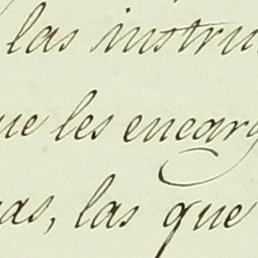 las instru
ue les encarg
as, las que